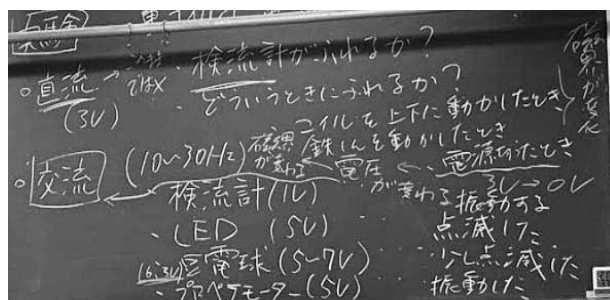 実験
○直流 → ではX ・検流計がふれるか?
(3V) ・どういうときにふれるか?
コイルを上下に動かしたとき
鉄しんを動かしたとき
電源切ったとき
3V→0V
磁界が変化
磁界が変わる ← 電圧が変わる
○交流 (10~30Hz)
・検流計(1V) 振動する
・LED (5V) ‥‥ 点滅した
(6.3V)豆電球(5~7V) ‥‥ 少し点滅した
・プロペラモーター(5V) 振動した